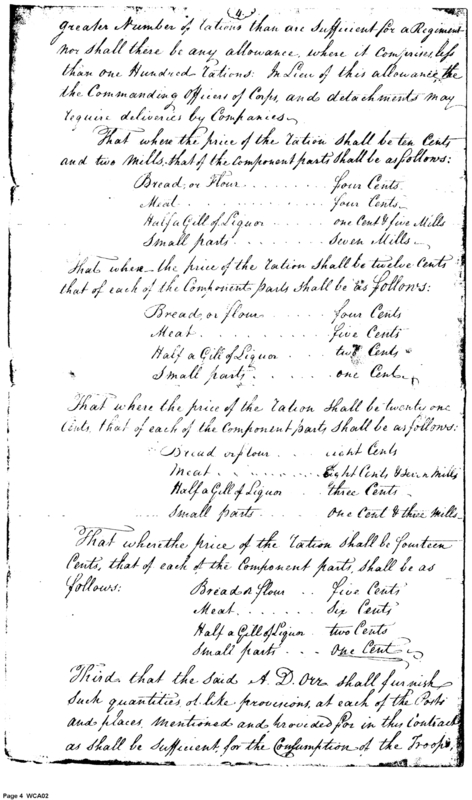 4
greater Number of rations than are sufficient for a Regiment
nor shall there be any allowance, where it Comprises less
than one Hundred rations: In Lieu of this allowance the
the Commanding Officers of Corps, and detachments may
require deliveries by Companies.
That where the price of the ration shall be ten Cents
and two Mills, that of the Component parts shall be as follows:
Bread, or Flour . . . . . . four Cents
Meat . . . . . . four Cents
Half a Gill of Liquor . . . one Cent & five Mills
Small parts . . . . . . Seven Mills
That when the price of the ration shall be twelve Cents
that of each of the Component parts shall be as follows:
Bread, or flour . . . . . four Cents
Meat . . . . . . five Cents
Half a Gill of Liquor . . . two Cents
Small parts . . . . . one Cent
That where the price of the ration shall be twenty one
Cents, that of each of the Component parts shall be as follows:
Bread or flour . . . . eight Cents
Meat . . . . . . . Eight Cents & Seven Mills
Half a Gill of Liquor . . three Cents
Small parts . . . . one Cent & three Mills
That where the price of the ration shall be fourteen
Cents, that of each of the Component parts, shall be as
follows: Bread or flour . . . five Cents
Meat . . . . . . Six Cents
Half a Gill of Liquor . two Cents
Small parts . . . one Cent
Third that the said A. D. Orr shall furnish
such quantities of like provisions, at each of the Posts
and places, mentioned and provided for in this Contract
as shall be sufficient for the Consumption of the Troops,
Page 4 WCA02